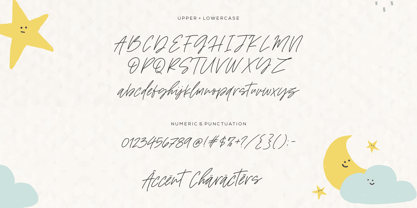 UPPER + LOWERCASE
ABCDEFGHIJKLMN
OPQRSTUVWXYZ
abcdefghijklmnopqrstuvwxyz
NUMERIC & PUNCTUATION
0123456789@(#$%+?/{}():-
Accent Characters